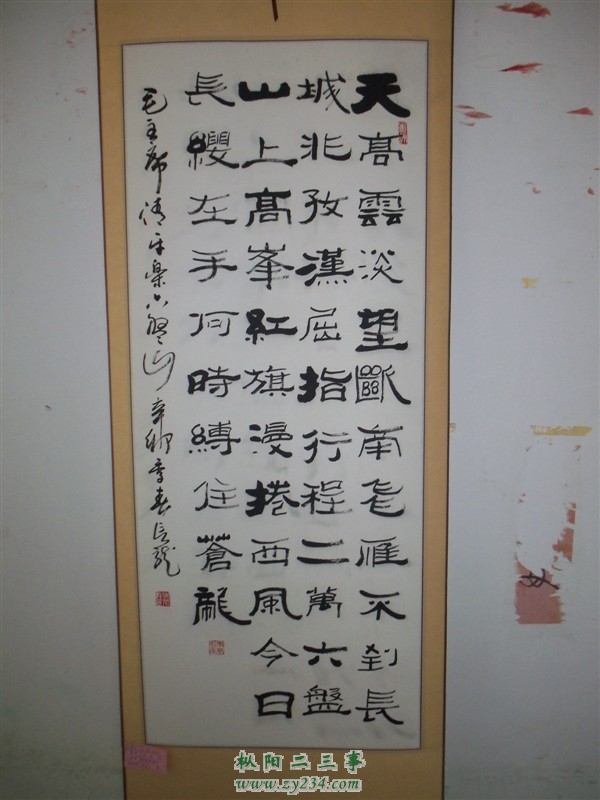 天高雲淡望斷南飛雁不到長
城非好漢屈指行程二萬六盤
山上高峯紅旗漫捲西風今日
長纓左手何時縛住蒼龍
毛主席清平樂六盤山 辛卯季春長龍
枞阳二三事
www.zy234.com